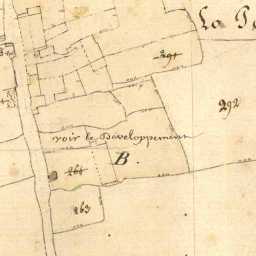 La
291
292
voir le Développement
B
263